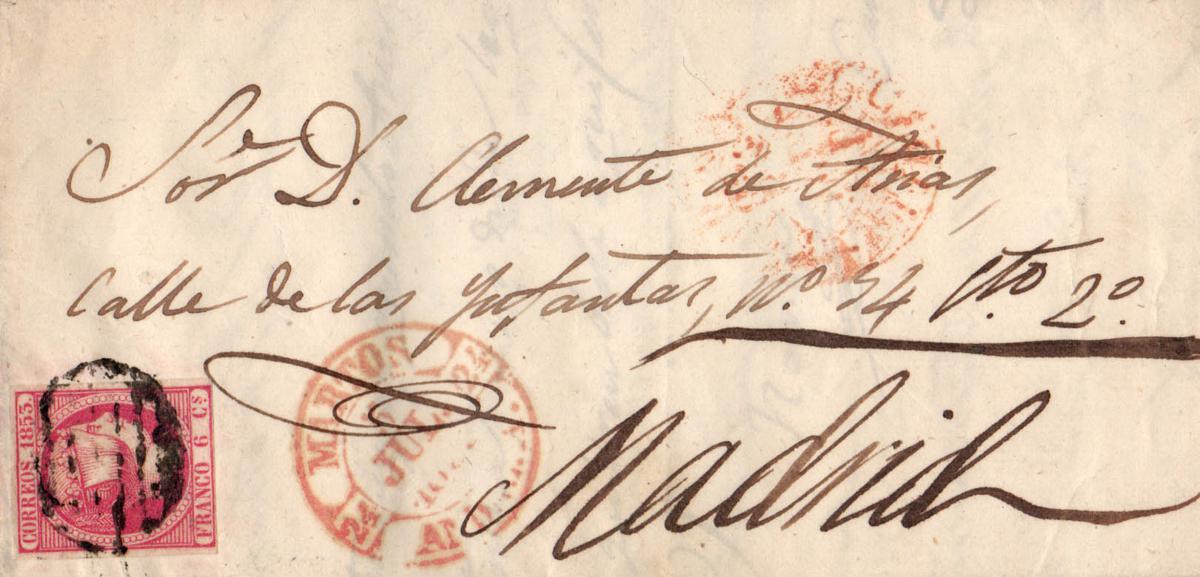 Sor. D. Clemente de Arias,
calle de las Ynfantas, nº. 34 Cto 2º.
Madrid
CORREOS. 1853.
FRANCO 6 Cs
JUL.